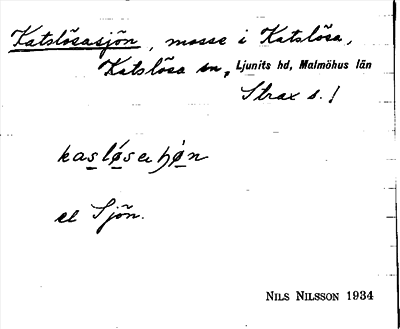 Katslösasjön, mosse i Katslösa,
Katslösa sn, Ljunits hd, Malmöhus län
Strax s. !
kaslø̀saɧø̀n
el Sjön.
NILS NILSSON 1934